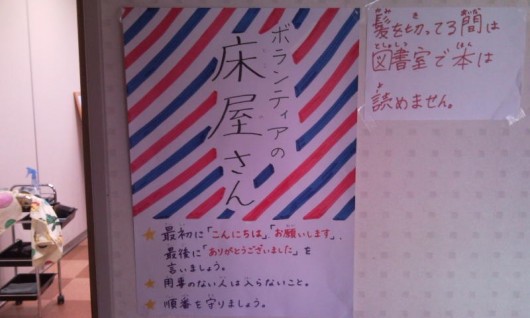 ボランティアの
床屋さん
★ 最初に「こんにちは」「お願いします」、
最後に「ありがとうございました」を
言いましょう。
★ 用事のない人は入らないこと。
★ 順番を守りましょう。
髪を切ってる間は
図書室で本は
読めません。